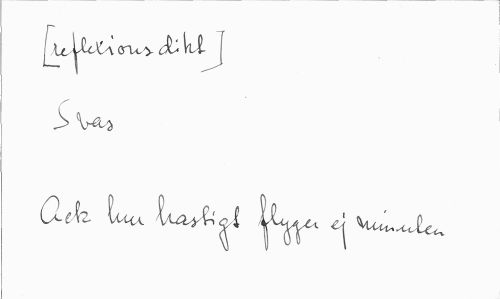 [reflexionsdikt]
Svas
Ack hur hastigt flyger ej minuten